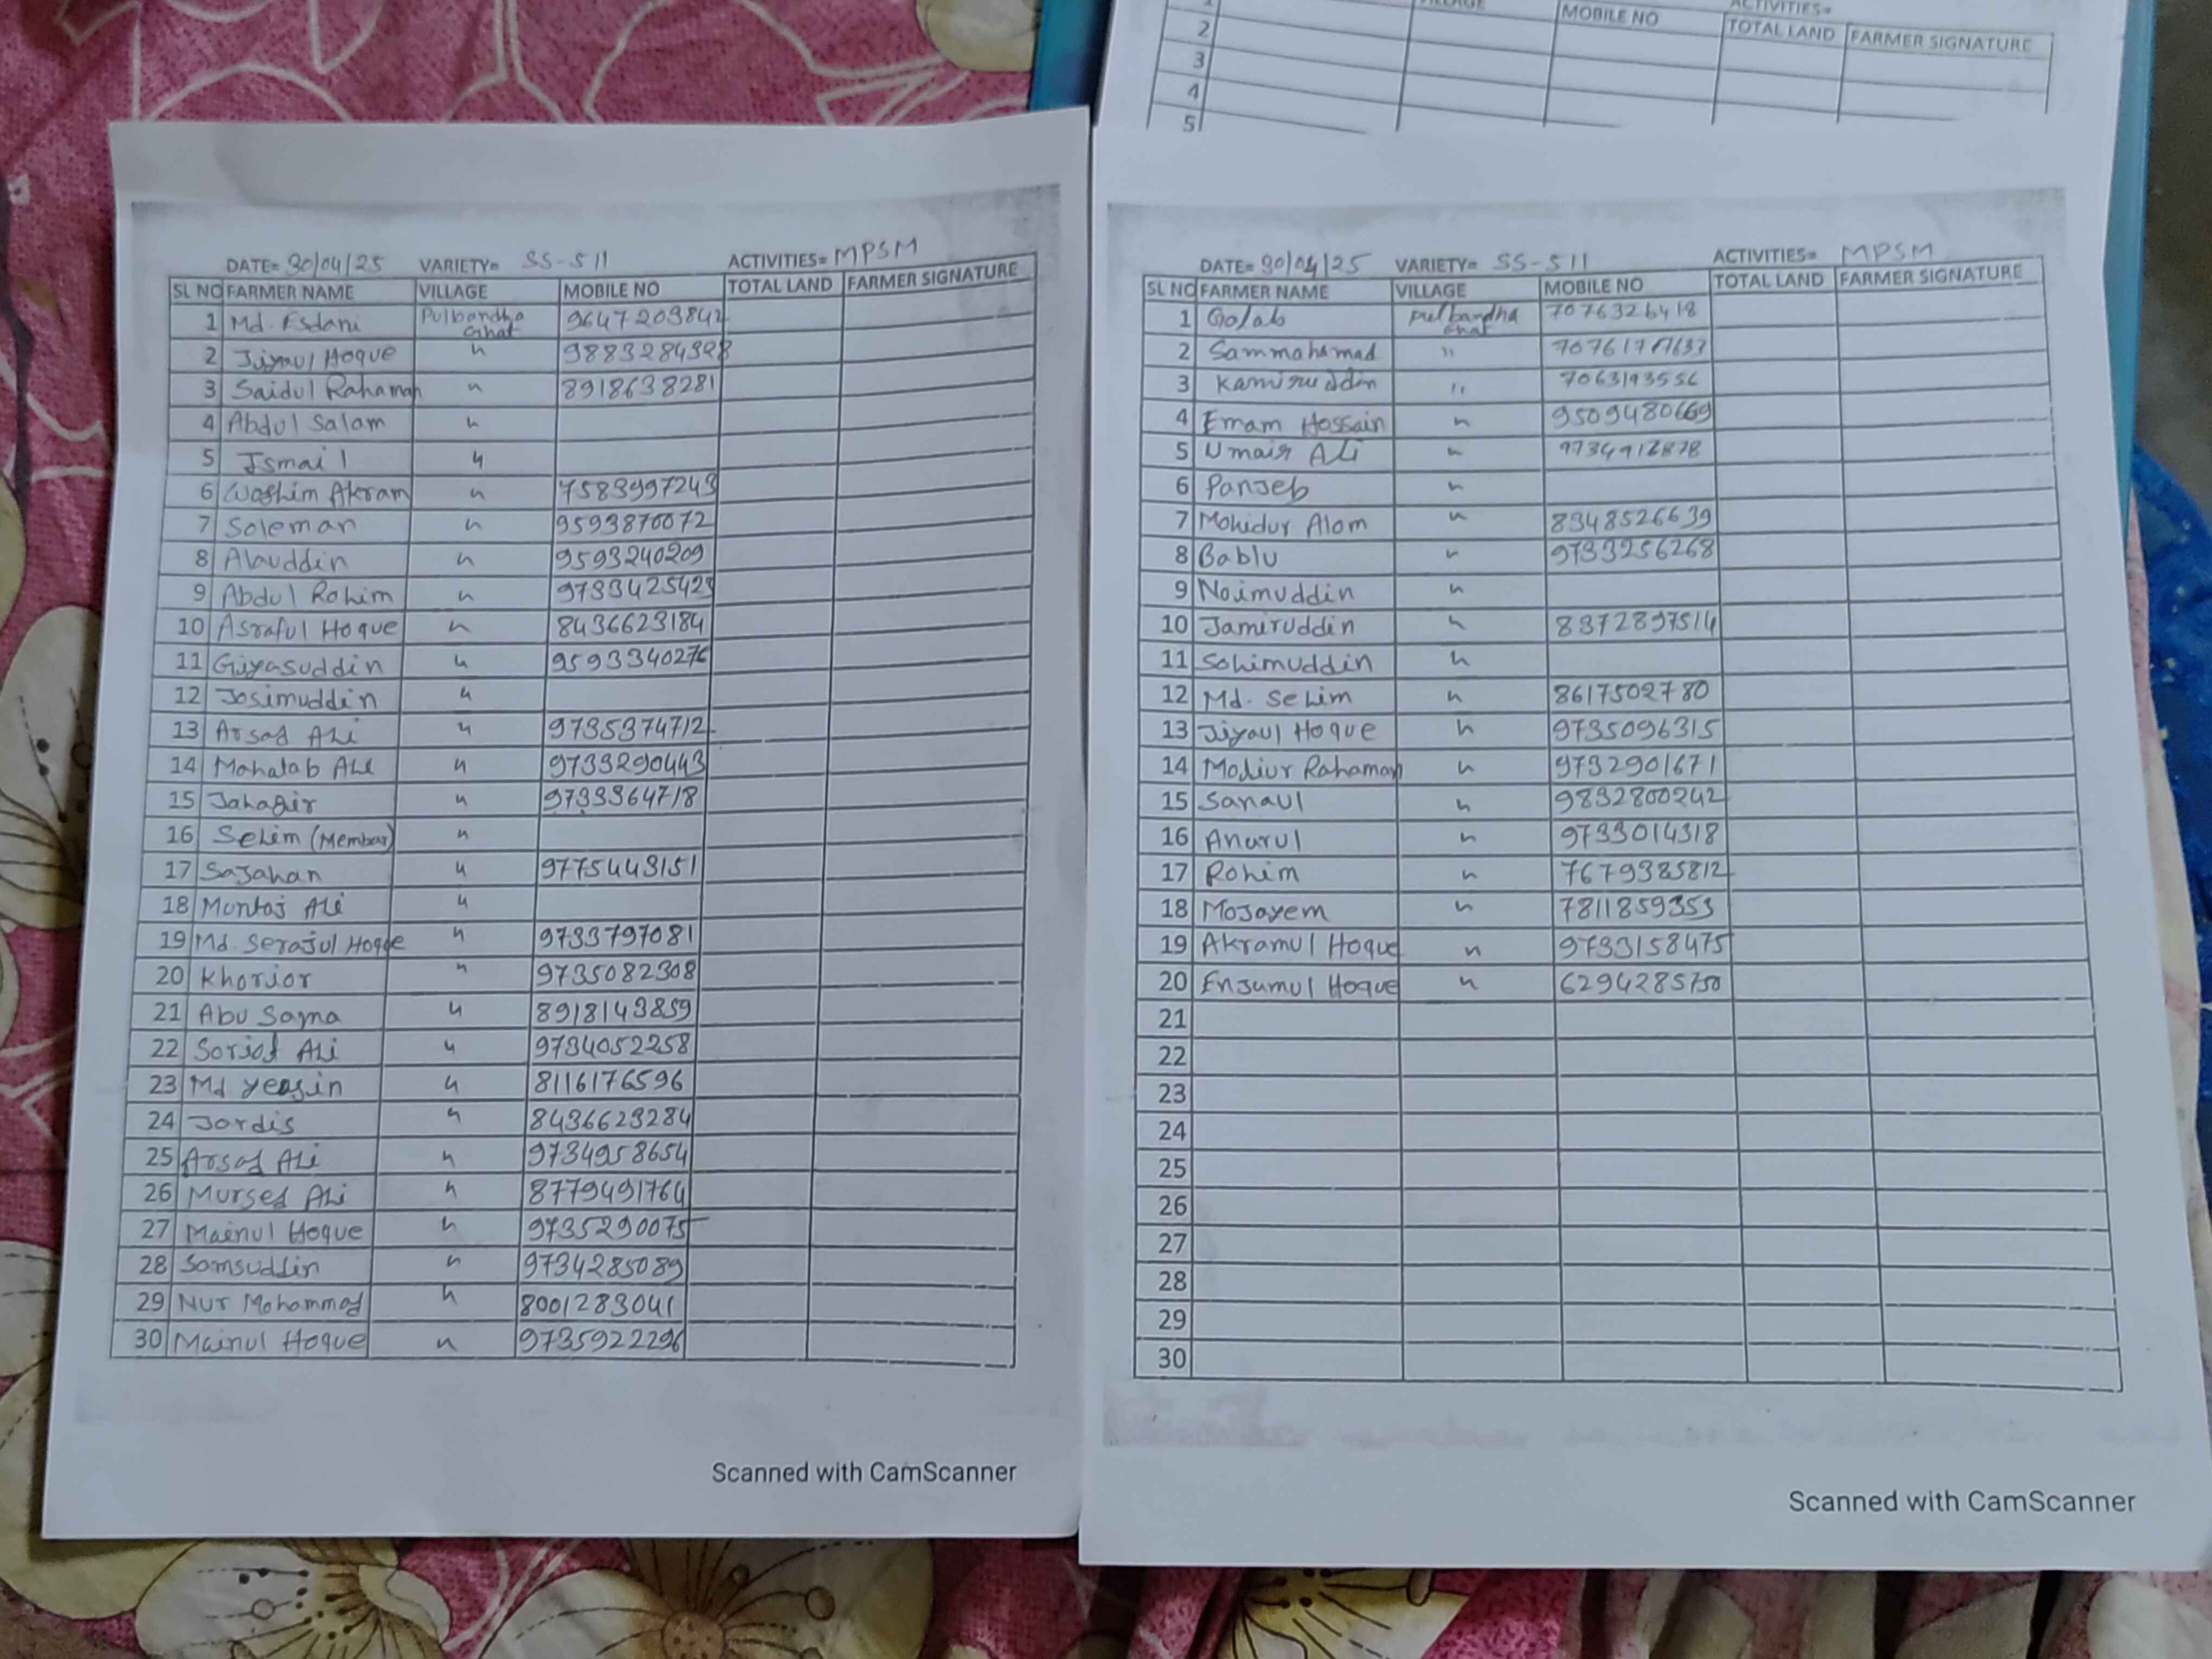 MOBILE NO
TOTAL LAND FARMER SIGNATURE
2
3
4
5
DATE= 30/04/25 VARIETY= SS-511 ACTIVITIES= MPSM
SL NO FARMER NAME VILLAGE MOBILE NO TOTAL LAND FARMER SIGNATURE
1 Md. Esdani Pulbandha Ghat 9647203842
2 Jiyaul Hoque " 9883284328
3 Saidul Rahaman " 8918638281
4 Abdul Salam "
5 Ismail "
6 Washim Akram " 7583997243
7 Soleman " 9593870072
8 Alauddin " 9593240209
9 Abdul Rohim " 973342542
10 Asraful Hoque " 8436623184
11 Giyasuddin " 9593340276
12 Josimuddin "
13 Arsad Ali " 9735374712
14 Mahalab Ali " 9733290443
15 Jahagir " 9733364718
16 Selim (Membar) "
17 Sajahan " 9775443151
18 Muntaj Ali "
19 Md. Serajul Hoque " 9733797081
20 Khorjor " 9735082308
21 Abu Sama " 8918143859
22 Sorjot Ali " 9734052258
23 Md Yeasin " 8116176596
24 Jordis " 8436623284
25 Arsad Ali " 9734958654
26 Mursed Ali " 8779491764
27 Mainul Hoque " 9735290075
28 Samsuddin " 9734285089
29 Nur Mohammad " 8001283041
30 Mainul Hoque " 9735922296
Scanned with CamScanner
DATE= 30/04/25 VARIETY= SS-511 ACTIVITIES= MPSM
SL NO FARMER NAME VILLAGE MOBILE NO TOTAL LAND FARMER SIGNATURE
1 Golab Pulbandha Ghat 7076326418
2 Sammahamad "
3 Kamiruddin " 7063193556
4 Emam Hossain " 9509480669
5 Umair Ali " 9734912878
6 Panjeb "
7 Mohidur Alom " 8348526639
8 Bablu " 9733256268
9 Noimuddin "
10 Jamiruddin " 8372897514
11 Sohimuddin "
12 Md. Selim " 8617502780
13 Jiyaul Hoque " 9735096315
14 Modiur Rahaman " 9732901671
15 Sanaul " 9832800242
16 Anarul " 9733014318
17 Rohim " 7679385812
18 Mojayem " 7811859353
19 Akramul Hoque " 9733158475
20 Enjamul Hoque " 6294285750
21
22
23
24
25
26
27
28
29
30
Scanned with CamScanner